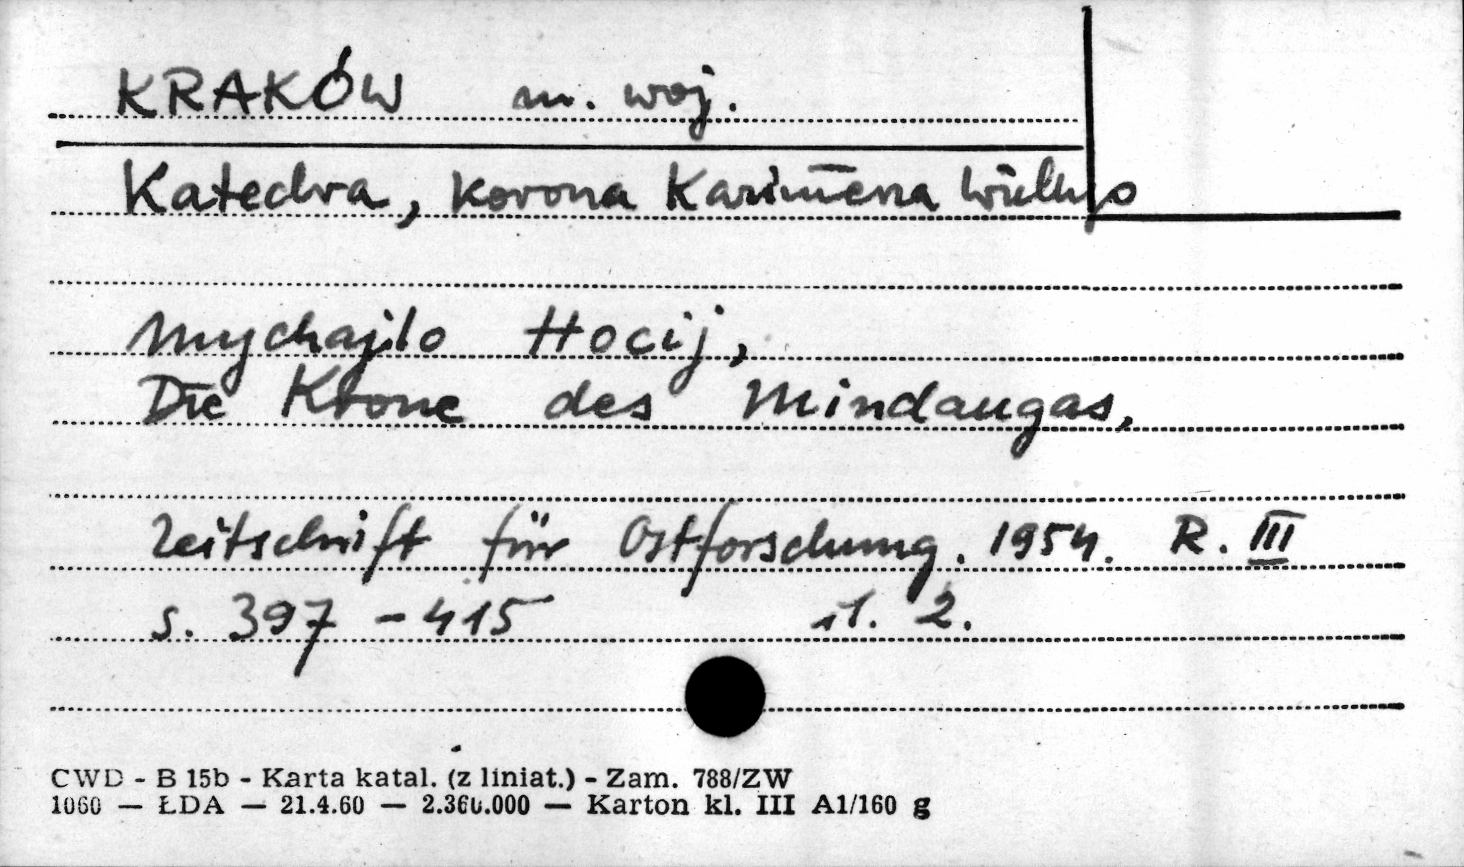 KRAKÓW m. woj.
Katedra, korona Kazimierza Wielkiego
Mychajlo Hocij,
Die Krone des Mindaugas,
Zeitschrift für Ostforschung. 1954. R. III
s. 397 - 415 il. 2.
CWD - B 15b - Karta katal. (z liniat.) - Zam. 788/ZW
1060 — ŁDA — 21.4.60 — 2.360.000 — Karton kl. III A1/160 g